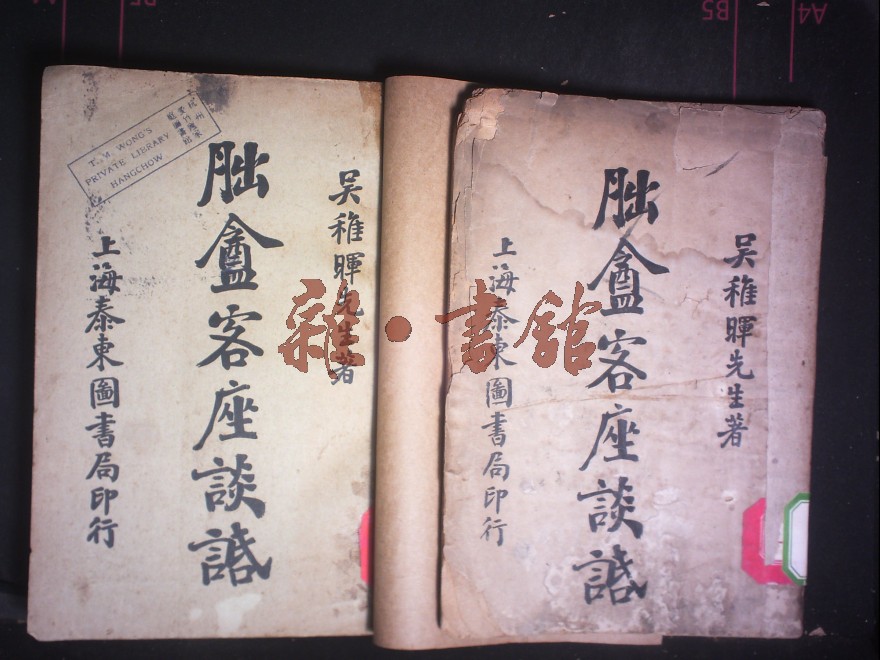 A4
B5
T. M. WONG'S
PRIVATE LIBRARY
HANGCHOW
吳稚暉先生著
朏盦客座談䛡
上海泰東圖書局印行
吳稚暉先生著
朏盦客座談䛡
上海泰東圖書局印行
雜·書館